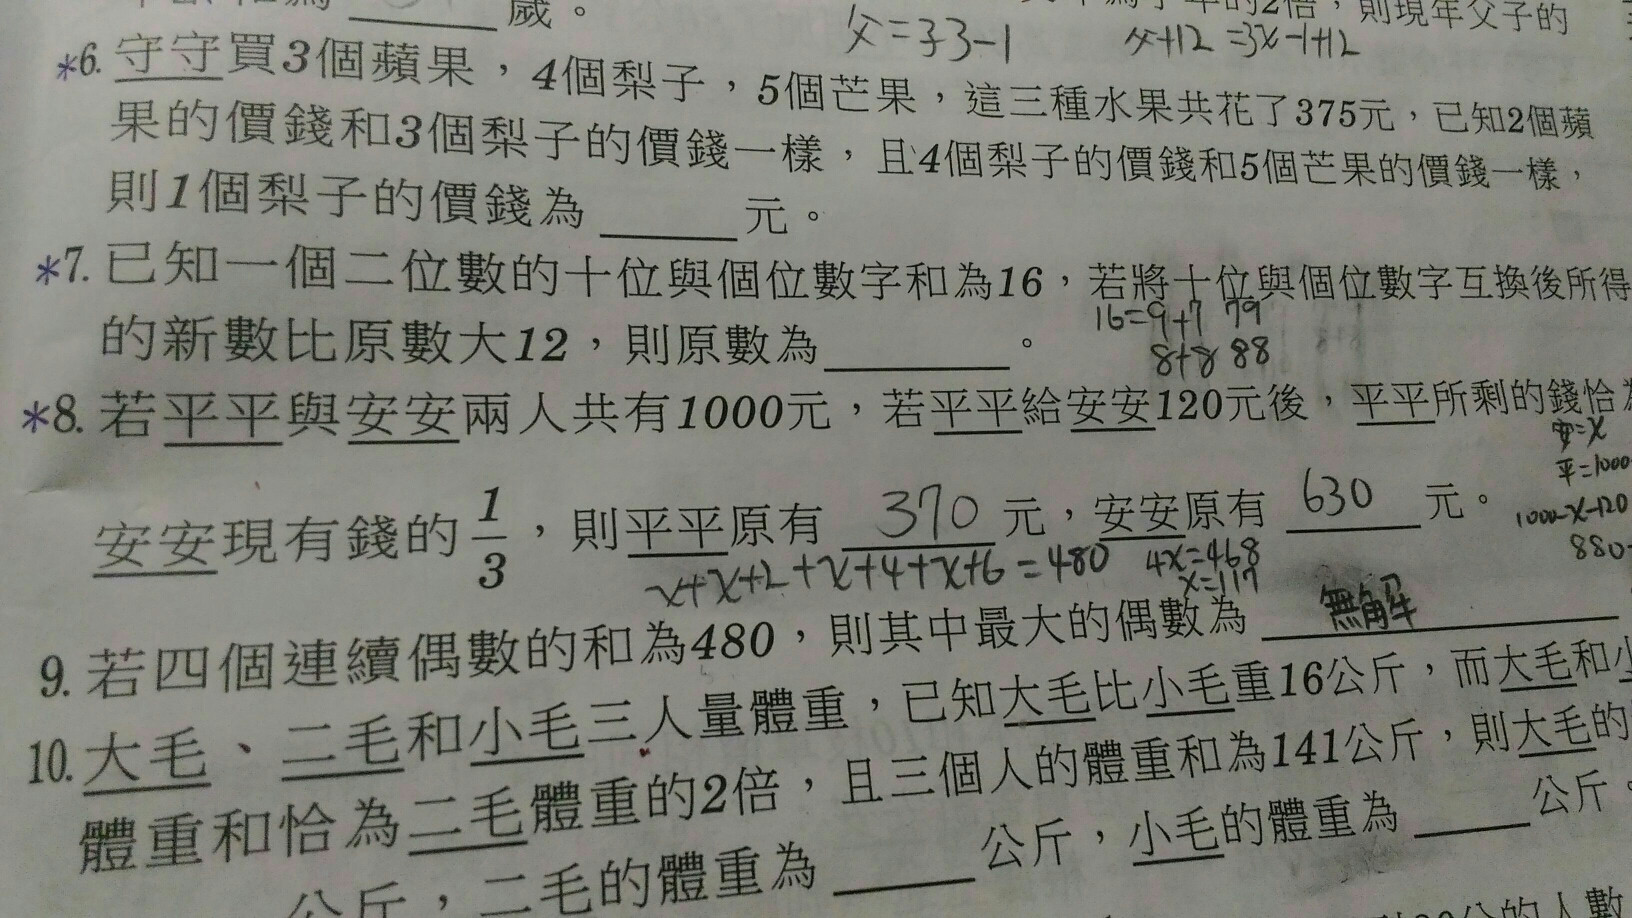 歲。
的2倍，則現年父子的
父=33-1 父+12=3x-1+12
*6. 守守買3個蘋果，4個梨子，5個芒果，這三種水果共花了375元，已知2個蘋
果的價錢和3個梨子的價錢一樣，且4個梨子的價錢和5個芒果的價錢一樣，
則1個梨子的價錢為 ____ 元。
*7. 已知一個二位數的十位與個位數字和為16，若將十位與個位數字互換後所得
16=9+7 79
的新數比原數大12，則原數為 ____ 。
8+8 88
*8. 若平平與安安兩人共有1000元，若平平給安安120元後，平平所剩的錢恰
安=x
平=1000
安安現有錢的1/3，則平平原有 370 元，安安原有 630 元。
1000-x-120
880
x+x+2+x+4+x+6=480 4x=468
x=117
9. 若四個連續偶數的和為480，則其中最大的偶數為 無解
10. 大毛、二毛和小毛三人量體重，已知大毛比小毛重16公斤，而大毛和小
體重和恰為二毛體重的2倍，且三個人的體重和為141公斤，則大毛的
公斤，二毛的體重為 ____ 公斤，小毛的體重為 ____ 公斤。
的人數